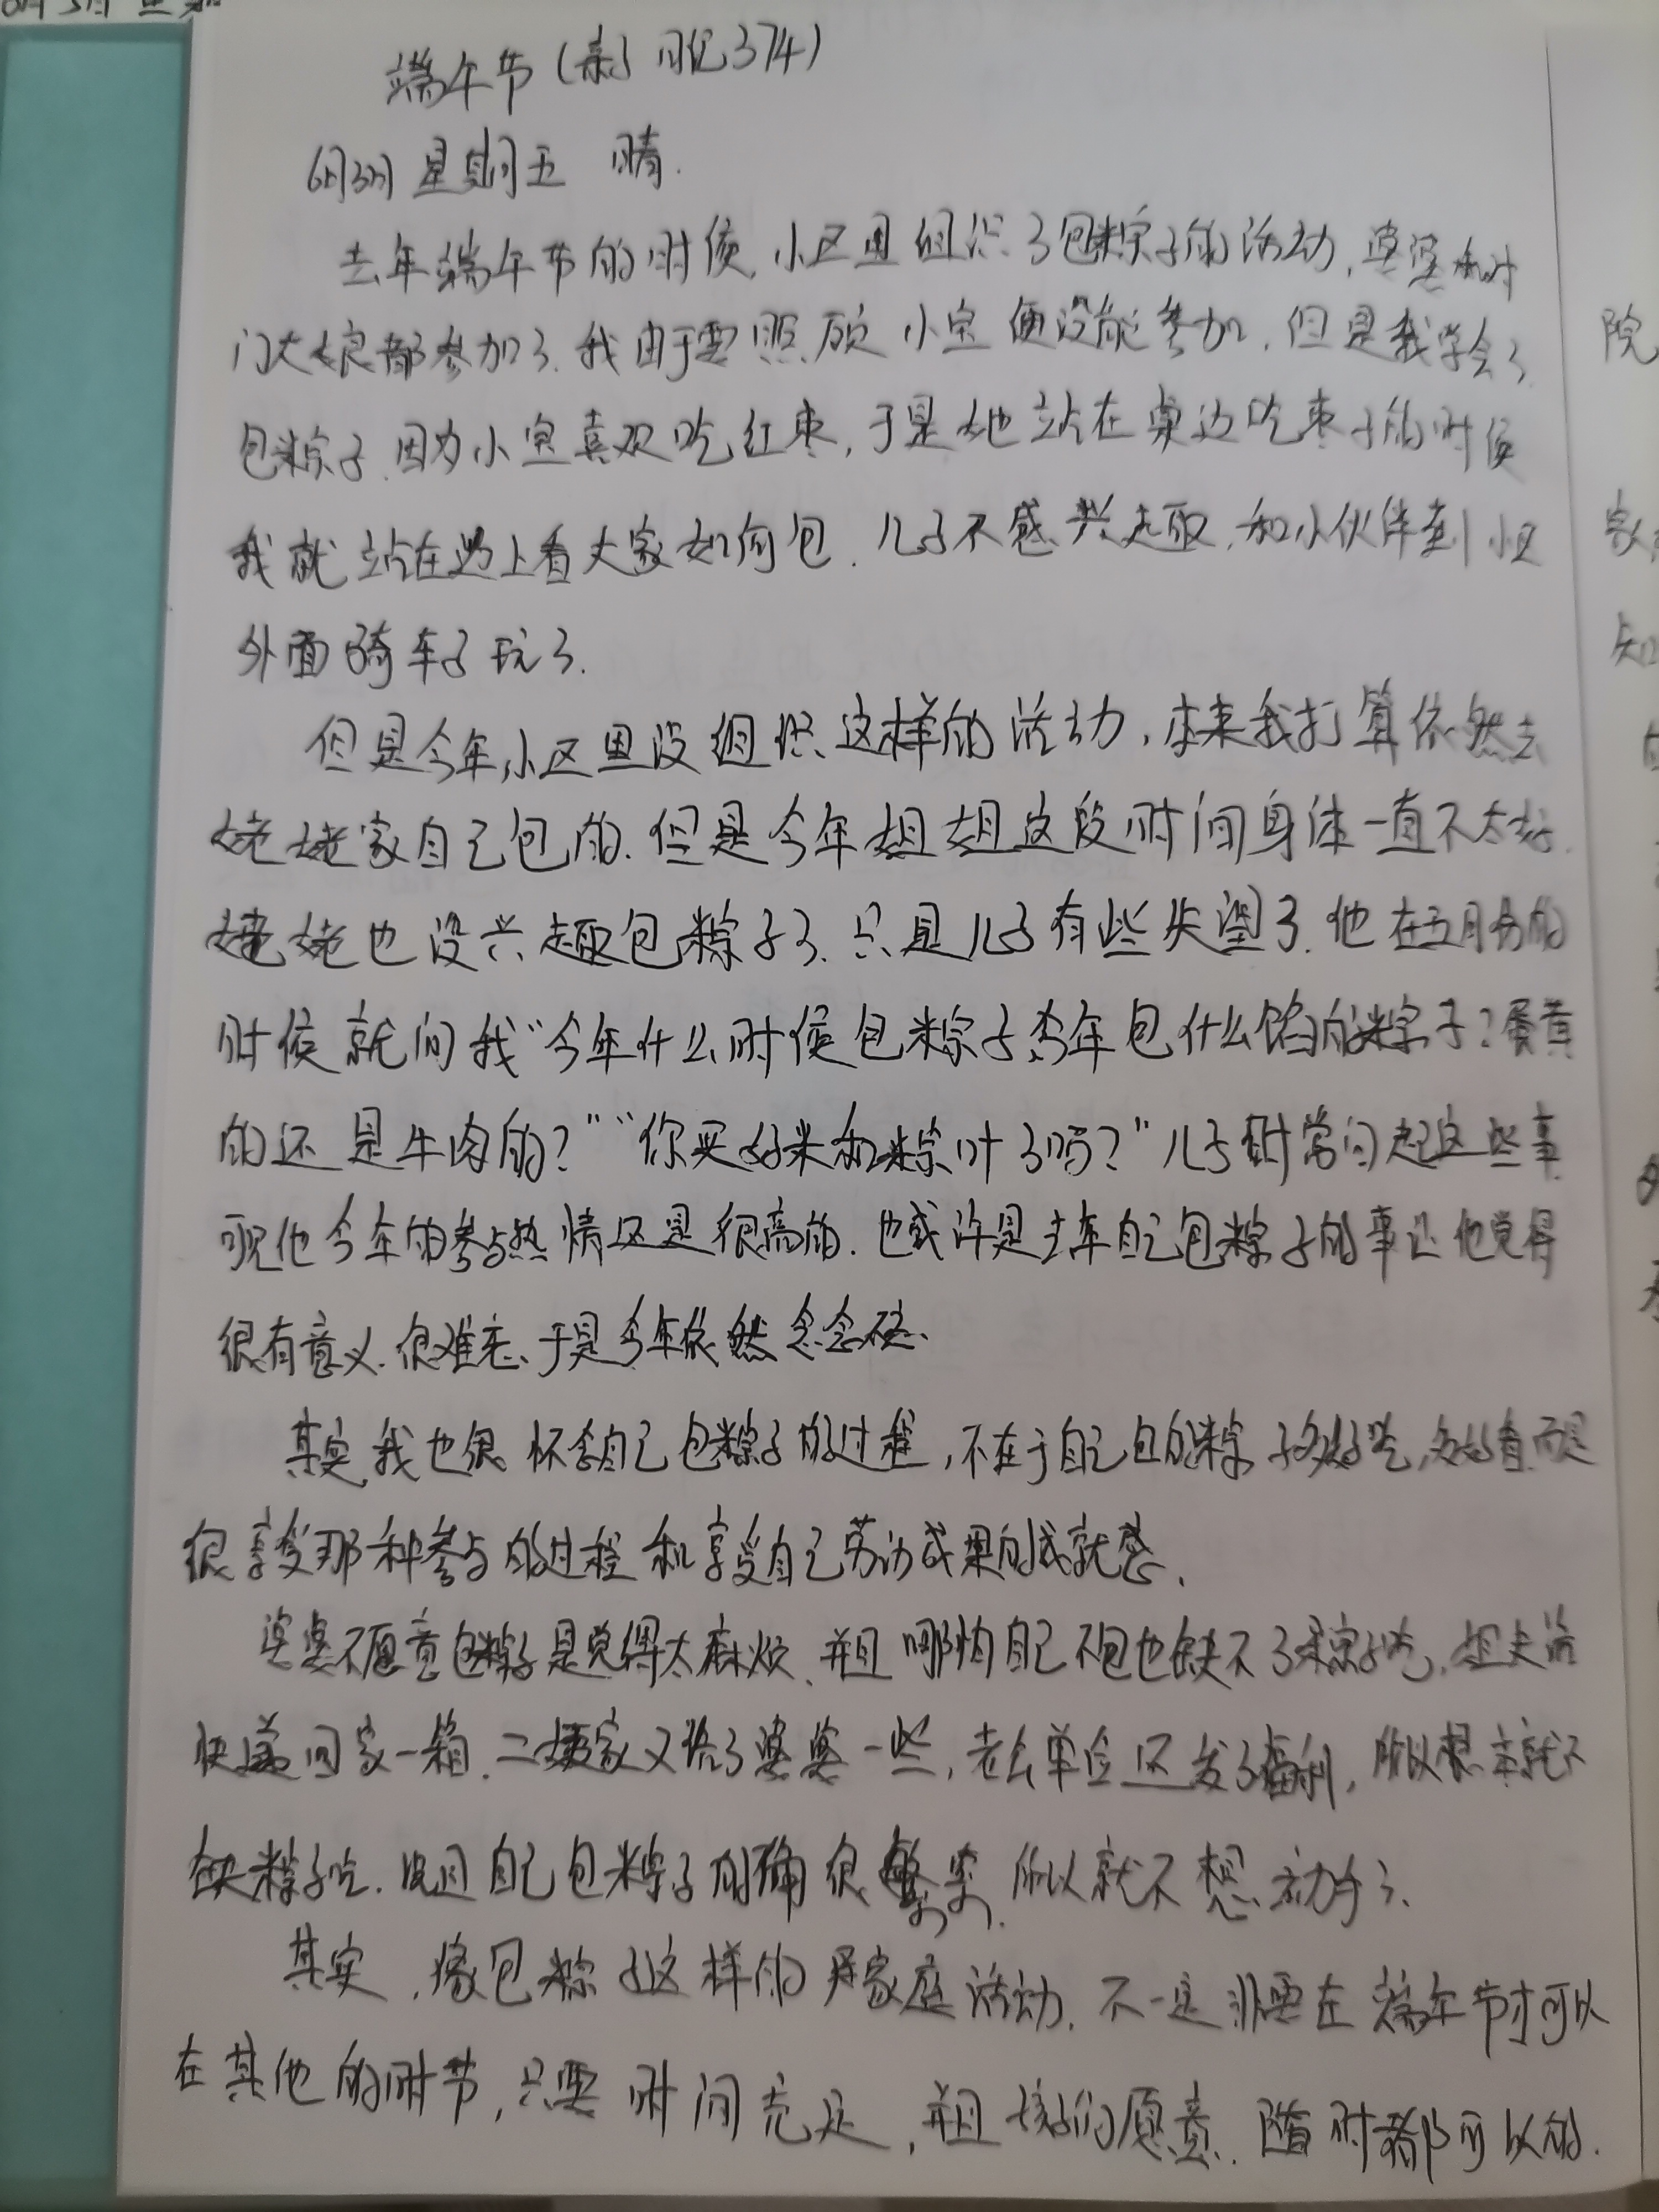 端午节(亲子日记374)
6月3日 星期五 晴.
去年端午节的时候,小区里组织了包粽子的活动,婆婆和对
门大娘都参加了.我由于要照顾小宝便没能参加,但是我学会了
包粽子.因为小宝喜欢吃红枣,于是她站在桌边吃枣子的时候
我就站在边上看大家如何包.儿子不感兴趣,和小伙伴到小区
外面骑车子玩了.
但是今年,小区里没组织这样的活动,本来我打算依然去
姥姥家自己包的.但是今年姐姐这段时间身体一直不太好.
姥姥也没兴趣包粽子了.只是儿子有些失望了.他在五月份的
时候就问我“今年什么时候包粽子,今年包什么馅的粽子?蛋黄
的还是牛肉的?”“你买好米和粽叶了吗?”儿子时常问起这些事
可见他今年的参与热情还是很高的.也或许是去年自己包粽子的事让他觉得
很有意义.很难忘、于是今年依然念念不忘.
其实,我也很怀念自己包粽子的过程,不在于自己包的粽子多好吃,多好看.而是
很享受那种参与的过程和享受自己劳动成果的成就感.
婆婆不愿意包粽子是觉得太麻烦、并且哪怕自己不包也缺不了粽子吃,姐夫给
快递回家一箱.二姨家又给了婆婆一些,老公单位还发了福利,所以根本就不
缺粽子吃.况且自己包粽子的确很繁琐.所以就不想动手了.
其实,像包粽子这样的家庭活动.不一定非要在端午节才可以
在其他的时节,只要时间充足,并且孩子们愿意.随时都可以的.
院
家
知